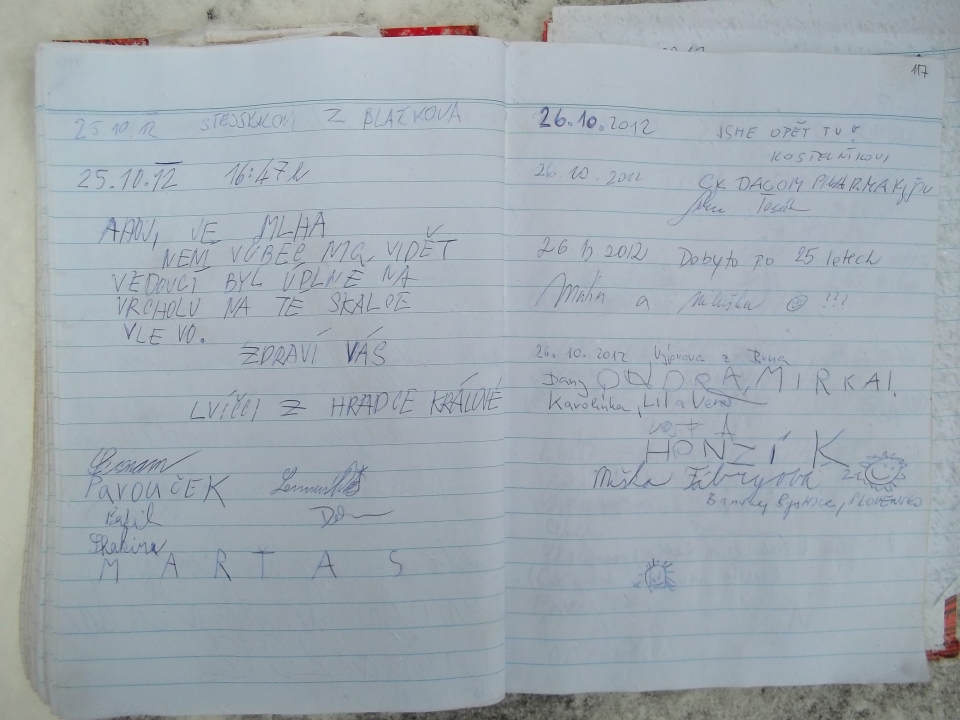 25.10.12 STEJSKALOVI Z BLAŽKOVA
25.10.12 16:47h
AHOJ, JE MLHA
NENÍ VŮBEC NIC VIDĚT
VEDOUCÍ BYL ÚPLNĚ NA
VRCHOLU NA TE SKALCE
VLEVO.
ZDRAVÍ VÁS
LVÍČCI Z HRADCE KRÁLOVÉ
PAVOUČEK
Rafil
Shakira
MARTAS
117
26.10.2012 JSME OPĚT TU
KOSTELNÍKOVI
26.10.2012 CK DACOM PHARMA Kyjov
26 2012 Dobyto po 25 letech
a Miluška !!!
26.10.2012 Výprava z Brna
Dany ONDRA, MIRKA!
Karolínka, Lil a Vera
VOJTA
HONZÍK
Miška Fabryová
Banská Bystrica, SLOVENSKO